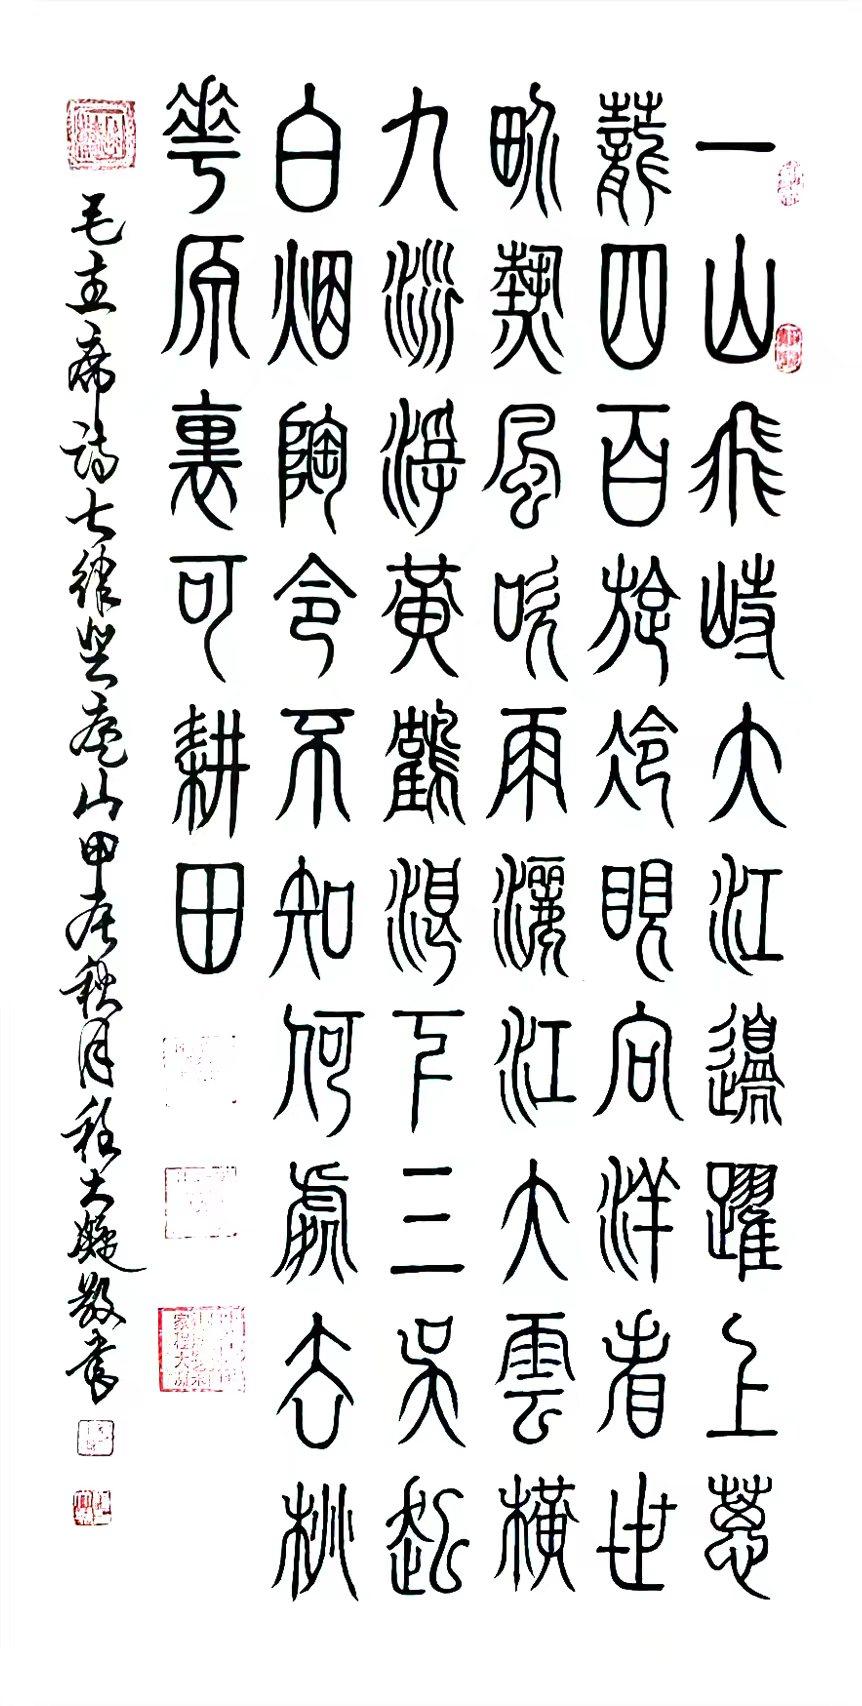 一山飛峙大江邊躍上蔥
蘢四百旋冷眼向洋看世
畍熱風吹雨灑江天雲橫
九派浮黃鶴浪下三吳起
白烟陶令不知何處去桃
華原裏可耕田
毛主席詩七律登廬山甲辰秋月程大敬書